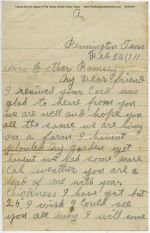 Pennington Texas
Feb 24 1911
Mrs Esther Ramsey
My Dear friend
I received your Card was
glad to here from you
we are well and hope you
all the same we are living
on a farm I havent
planted my garden yet
havent we had some more
Col weather you are a
head of me with your
chickens I have got but
25 I wish I could see
you all maby I will some